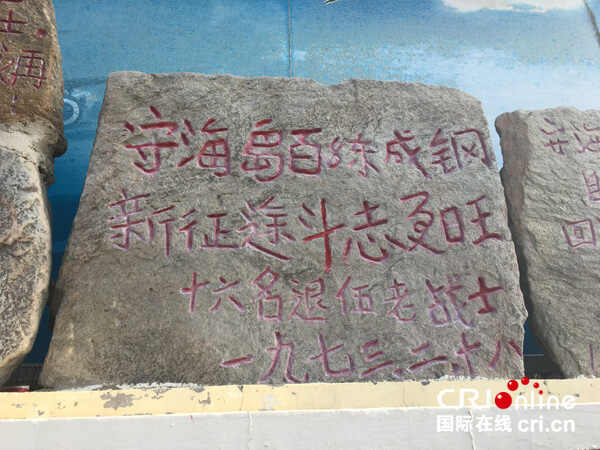 守海岛百练成钢
新征途斗志更旺
十六名退伍老战士
一九七三.二.十八
海
回
CRIonline
国际在线 cri.cn